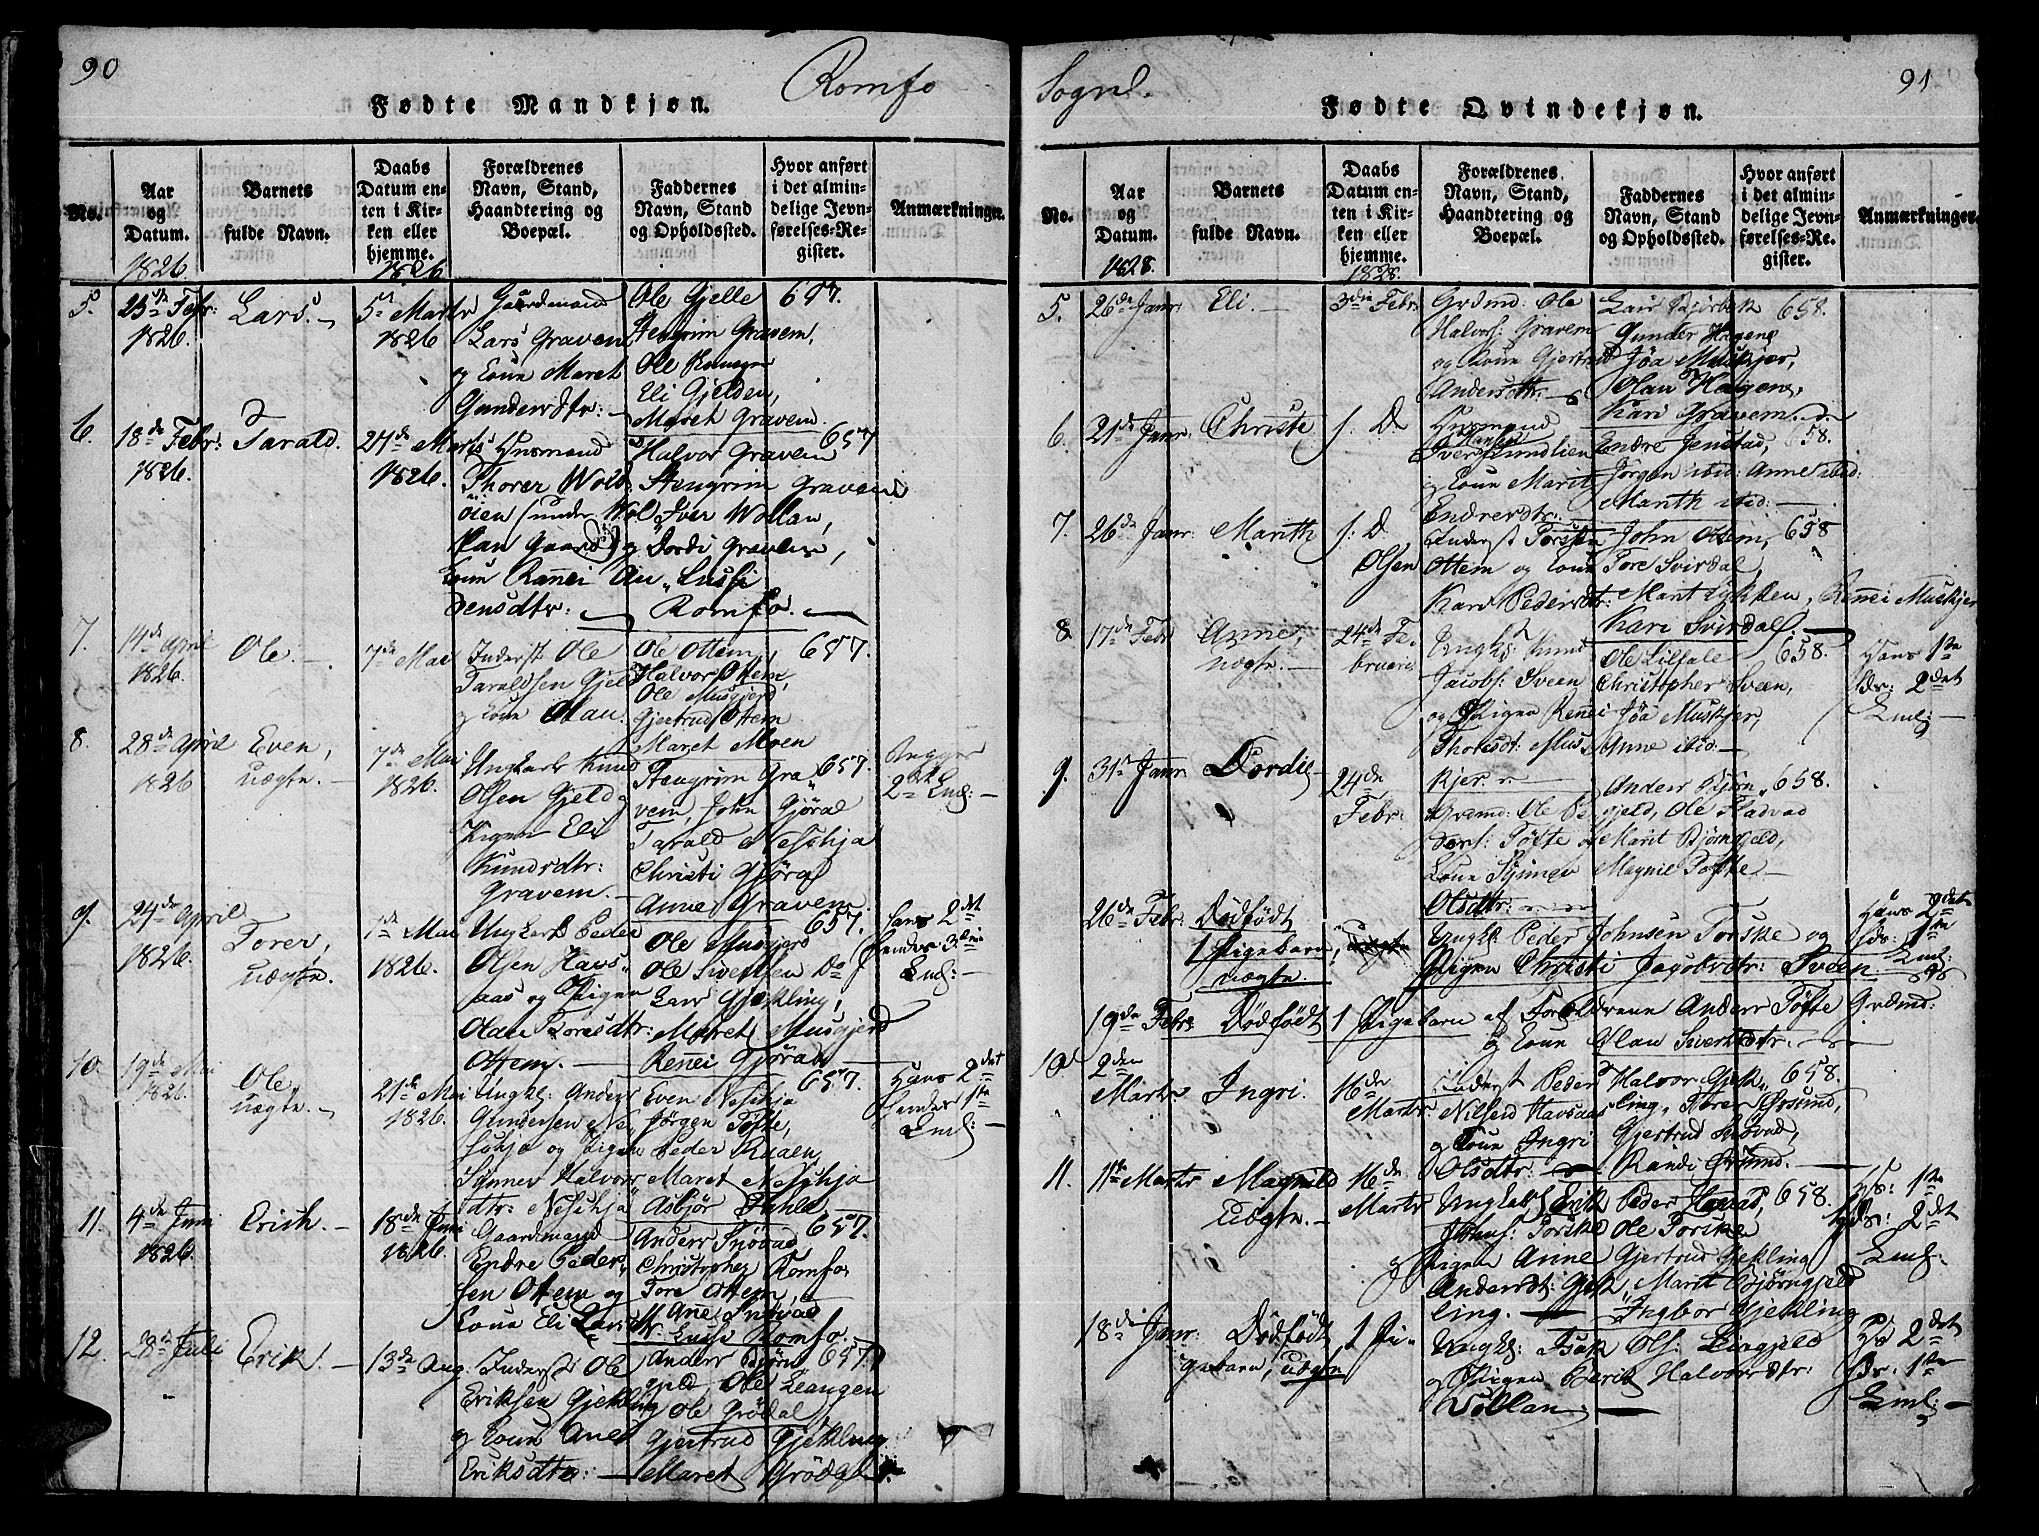 90
Romfo
Fødte Mandkjøn.
No.
Aar
og
Datum.
1826.
Barnets
fulde Navn.
Daabs
Datum en-
ten i Kir-
ken eller
hjemme.
1826
Forældrenes
Navn, Stand,
Haandtering og
Boepæl.
Faddernes
Navn, Stand
og Opholdssted.
Hvor anført
i det almin-
delige Jevn-
førelses-Re-
gister.
Anmærkninger.
5.
Febr:
1826.
Lars.
5te Marts
1826
Gaardmand
Lars Gravem
og Kone Maret
Gundersdtr:
Ole Gjelle
Stengrim Gravem,
Ole
Eli Gjelden,
Maret Gravem.
657.
6.
18de Febr:
1826.
Tarald.
27de Marts
1826.
Husmand
Thorer Wold
øien (under Wol
lan Gaard) og
Kone Rannei
Halvor Gravem
Stengrim Gravem
Iver Wollan,
Dordi Gravem,
Romfo.
657
7.
14de April
1826.
Ole.
7de Mai
Inderst Ole
Taraldsen Gjeld
og Kone Olau.
Ole Ottem,
Halvor Ottem,
Ole Musgjerd
Gjertrud Ottem
Maret Moen
657.
8.
28de April
1826
Even,
uægte.
7de Mai
1826.
Ungkarl Knud
Olsen Gjeld og
Pigen Eli
Knudsdtr:
Gravem.
Stengrim Gra-
vem, John Gjøra
Tarald Neschja
Christi Gjøra
Anne Gravem.
657.
2det Leml:
9.
24de April
1826.
Torer,
uægte.
7de Mai
1826.
Ungkarl Peder
Olsen Havs-
aas og Pigen
Olau Toresdtr:
Ottem.
Ole Musgjerd
Ole Svendsen Do
Lars Gjekling,
Maret Musgjerd
Rennei Gjøra
657.
hans 2det
hendes 3die
Leml:
10.
19de Mai
1826.
Ole,
uægte.
21de Mai
1826.
Ungkl: Anders
Gundersen Ne-
schja og Pigen
Synnev Halvors
dtr: Neschja
Even Neschja
Jørgen Tøfte,
Peder Ruaen,
Maret Neschja
Asbjør Hahle
657.
Hans 2det
Hendes 1ste
Leml:
11.
4de Juni
1826.
Erich.
18de Juni
1826.
Gaardmand
Endre Peder-
sen Ottem og
Kone Eli Larsdtr.
Anders Snøvad
Christopher Romfo,
Tore Ottem,
Marie Snøvad
Romfo.
657.
12.
28de Juli
Erik.
13de Aug.
Inderst Ole
Eriksen Gjekling
og Kone Anne
Eriksdtr:
Anders Bjørn
gjeld, Ole Leangen
Ole Grødal,
Gjertrud Gjekling
Maret Grødal.
657
Sogn.
91
Fødte Qvindekjøn.
No.
Aar
og
Datum.
1828.
Barnets
fulde Navn.
Daabs
Datum en-
ten i Kir-
ken eller
hjemme.
1828.
Forældrenes
Navn, Stand,
Haandtering og
Boepæl.
Faddernes
Navn, Stand
og Opholdssted.
Hvor anført
i det almin-
delige Jevn-
førelses-Re-
gister.
Anmærkninger.
5.
26de Janr:
Eli.
3die Febr:
Grdmd: Ole
Halvors: Gravem
og Kone Gjertrud
Andersdtr:
Lars Bjørbek
Gunder Hagene
Jøa Muskjer,
Olau Hagene,
Kari Gravem.
658.
6.
21de Janr:
Christi
s: D
Husmand
Hansen
og Kone Marit
Endresdtr:
Endre Jenstad,
Jørgen ibid: Anne ibid:
Marith ibid:
658.
7.
26de Janr:
Marith
s: D.
Inderst Torsten
Olsen
Ottem og Kone
Kari Pedersdtr:
John Ottem,
Tore Svirdal,
Marit Lykken, Rennei Muskjer
Kari Svirdal
658
8.
17de Febr
Anne,
uægte.
24de Fe-
bruarii
Ungkl: Knud
Jacobs: Sveen
og Pigen Rennei
Thoresdt: Mus-
kjer.
Ole Lilfale
Christopher Sveen,
Jøa Muskjer,
Anne ibid:
658.
Hans 1ste
hds: 2det
Leml:
9.
31te Janr
Dordi
24de
Febr:
Grdmd: Ole Pe-
ders: Tøfte og
Kone Synnev
Olsdtr:
Anders Bjørn-
gjeld, Ole Fladvad
Marit Bjørngjeld,
Magnil Tøfte
658.
26de Febr:
Dødfødt
1 Pigebarn,
uægte.
Ungkl: Peder Johnsen Torske og
Pigen Christi Jacobsdtr: Sveen.
Hans 2det
hds: 1ste
Leml:
19de Febr:
Dødfødt 1 Pigebarn af Forældrene Anders Tøfte Grdmd:
og Kone Olau Sivertsdtr:
10.
2den
Marts
Ingri.
16de
Marts:
Inderst Peder
Nilsen Havsaas
og Kone Ingri
Olsdtr:
Halvor Gjek-
ling, Torer Ørsund,
Gjertrud Snøvad,
Randi Ørsund.
658.
11.
11te Marts
Magnild
uægte.
16de
Marts
Ungkarl Erik
Johns: Torske
og Pigen Anne
Andersdt: Gjek-
ling.
Peder Havsaas,
Ole Torske
Gjertrud Gjekling
Marit Bjørngjeld
Ingbor Gjekling
658.
Hs: 1ste
hds: 2det
Leml:
18de Janr:
Dødfødt 1 Pi-
gebarn, uægte
Ungkl: Isak Ols: Lingjeld
og Pigen Berit Halvorsdtr:
Vollan.
Hs 2det
hds: 1ste
Leml: